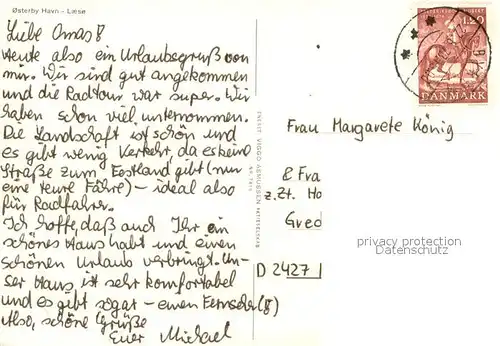 Østerby Havn - Læsø
Liebe Omas!
Heute also ein Urlaubsgruß von
mir. Wir sind gut angekommen
und die Radtour war super. Wir
haben schon viel unternommen.
Die Landschaft ist schön und
es gibt wenig Verkehr, da es keine
Straße zum Festland gibt (nur
eine teure Fähre) - ideal also
für Radfahrer.
Ich hoffe, daß auch Ihr ein
schönes Haus habt und einen
schönen Urlaub verbringt. Un-
ser Haus ist sehr komfortabel
und es gibt sogar - einen Fernseher (!)
Also, schöne Grüße
Euer Michael
ENERET VIGGO ASMUSSEN
120
DANMARK
Frau Margarete König
8 Fra
z.Zt. Ho
Gred
D 2427
privacy protection
Datenschutz